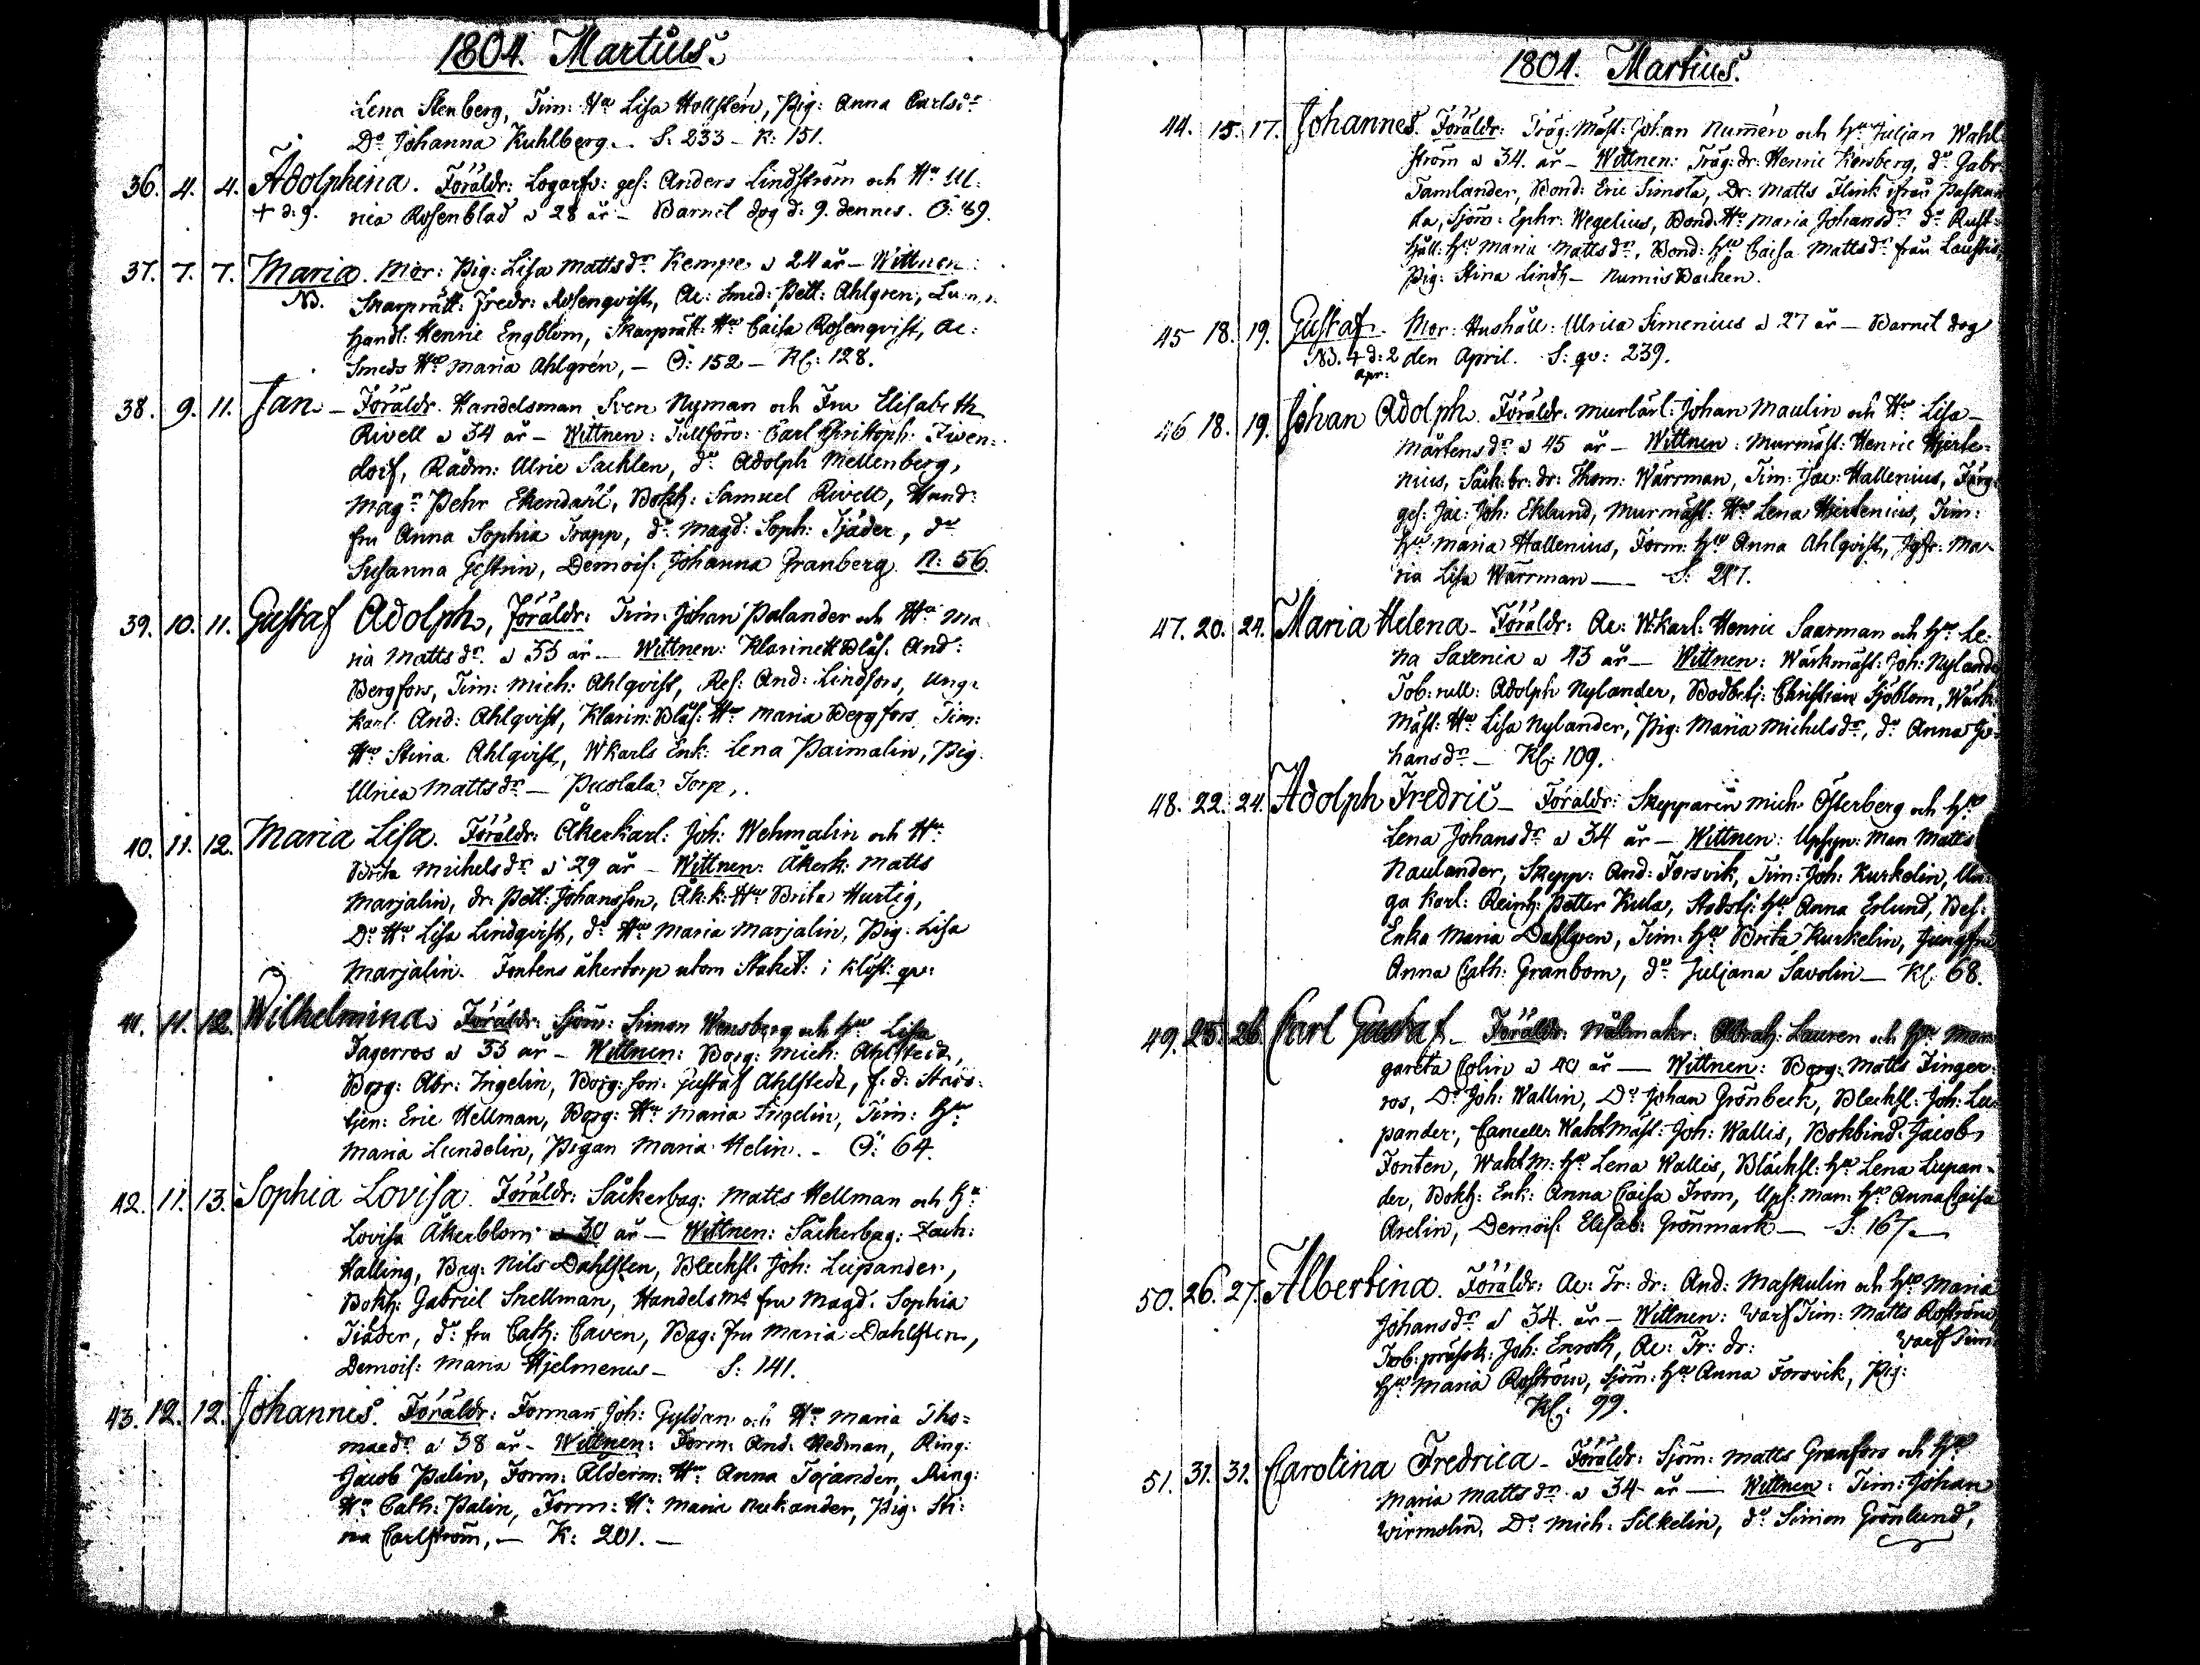 1804. Martius.
Lena Stenberg, Tim: Hu Lisa Hollsten, Pig: Anna Carlsd:
Do Johanna Kuhlberg. – S. 233 – K: 151.
36. 4. 4. Adolphina. Föräldr: Logarfv: ges: Anders Lindström och Hu Ul:
+ d: 9. rica Rosenblad a 28 år – Barnet dog d: 9. dennes. Ö: 89.
37. 7. 7. Maria. Mor: Pig: Lisa Mattsdr Kempe a 24 år – Wittnen:
NB. Skarprätt: Fredr: Rosenqvist, Ac: Smed: Pett: Ahlgren,
Handl: Henric Engblom, Skarprätt: Hu Caisa Rosenqvist, Ac:
Smeds Hu Maria Ahlgrén, – Ö: 152 – Kl: 128.
38. 9. 11. Jan – Föräldr. Handelsman Sven Nyman och Fru Elisabeth
Rivell a 34 år – Wittnen: Tullförv: Carl Christoph: Tiven:
dorf, Rådm: Ulric Sacklen, do Adolph Mellenberg,
Magr Pehr Ekendahl, Bokh: Samuel Rivell, Hand:
fru Anna Sophia Trapp, do Magd: Soph: Tjäder, do
Susanna Gestrin, Demois: Johanna Franberg. N: 56.
39. 10. 11. Gustaf Adolph, Föräldr: Tim: Johan Palander och Hu Ma
ria Mattsdr. a 33 år – Wittnen: Klarinett Blås: And:
Bergfors, Tim: Mich: Ahlqvist, Ref: And: Lindfors, Ung:
karl And: Ahlqvist, Klarin: Blås: Hu Maria Bergfors Tim:
Hu Stina Ahlqvist, Wkarls Enk: Lena Paimalin, Pig:
Ulrica Mattsdr – Puolala Torp,.
40. 11. 12. Maria Lisa. Föräldr: Åkerkarl: Joh: Wehmalin och Hu
Brita Michelsdr a 29 år – Wittnen: Åkerk: Matts
Marjalin, dr: Pett: Johansson, Åk: k: Hu Brita Hurtig,
Do Hu Lisa Lindqvist, do Hu Maria Marjalin, Pig: Lisa
Marjalin. Fontens åkertorp utom Staket: i Klost: qv:
41. 11. 12. Wilhelmina. Föräldr: Sjöm: Simon Wensberg och hu Lisa
Fagerros a 33 år – Wittnen: Borg: Mich: Ahlstedt,
Borg: Abr: Ingelin, Borg: son: Gustaf Ahlstedt, f: d:
tjen: Eric Hellman, Borg: Hu Maria Ingelin, Tim: Hu
Maria Lundelin, Pigan Maria Helin. – Ö: 64.
42. 11. 13. Sophia Lovisa. Föräldr: Såckerbag: Matts Hellman och Hu
Lovisa Åkerblom a 30 år – Wittnen: Såckerbag: Zach:
Halling, Bag: Nils Dahlsten, Blecksl: Joh: Lupander,
Bokh: Gabriel Snellman, Handelsms fru Magd. Sophia
Tjäder, do fru Cath: Caven, Bag: fru Maria Dahlsten,
Demois: Maria Hjelmerus – S: 141.
43. 12. 12. Johannes. Föräldr: Forman Joh: Gyldan och Hu Maria Tho=
maedr a 38 år – Wittnen: Form: And: Hedman, Ring:
Jacob Palin, Form: Ålderm: Hu Anna Tojander, Ring:
Hu Cath: Palin, Form: Hu Maria Nukander, Pig: Sti:
na Carlström, – K: 201. –
1804. Martius.
44. 15. 17. Johannes. Föräldr: Träg: Mäst: Johan Numén och Hu Juljan Wahl
ström a 34. år – Wittnen: Träg: dr: Henric Korsberg, do Gabr:
Tamlander, Bond: Eric Simola, Dr: Matts Flink ifrån
la, Sjöm: Ephr: Wegelius, Bond: Hu Maria Johansdr do Rust:
håll: Hu Maria Mattsdr, Bond: hu Caisa Mattsdr från
Pig: Stina Lindh – Numis Backen.
45 18. 19. Gustaf. Mor: Hushåll: Ulrica Simenius a 27 år – Barnet dog
NB. + d: 2 den April. S: qv: 239.
Apr:
46 18. 19. Johan Adolph. Föräldr: Murlärl: Johan Maulin och Hu Lisa
Mårtensdr a 45 år – Wittnen: Murmäst: Henric Hjerte:
nius, Säck: br: dr: Thom: Wärrman, Tim: Jac: Hallenius, Färg:
ges: Jac: Joh: Eklund, Murmäst: Hu Lena Hjertenius, Tim:
Hu Maria Hallenius, Form: Hu Anna Ahlqvist, Jgfr: Ma
ria Lisa Wärrman — S: 217.
47. 20. 24. Maria Helena – Föräldr: Ac: W:karl: Henric Saarman och Hu Le:
na Saxenia a 43 år – Wittnen: Wärkmäst: Joh: Nylande
Tob: rull: Adolph Nylander, Bodbetj: Christian Sjöblom, Wärk
Mäst: Hu Lisa Nylander, Pig: Maria Michelsdr, do Anna Jo=
hansdr – Kl: 109.
48. 22. 24. Adolph Fredric – Föräldr: Skepparen Mich: Österberg och Hu
Lena Johansdr a 34 år – Wittnen: Upsyn: Man Matts
Naulander, Skepp: And: Forsvik, Tim: Joh: Kurkelin, Un:
ga Karl: Reinh: Petter Kula, Stadstj: Hu Anna Erlund, Bes:
Enka Maria Dahlgren, Tim: Hu Brita Kurkelin, Jungfru
Anna Cath: Granbom, do Juljana Savolin – Kl: 68.
49. 25. 26. Carl Gustaf – Föräldr: Nålmakr: Abrah: Lauren och Hu Mar
gareta Colin a 40 år — Wittnen: Borg: Matts Finger:
ros, Do Joh: Wallin, Do Johan Grönbeck, Blecksl: Joh: Lu
pander, Cancelle Waktmäst: Joh: Wallis, Bokbind: Jacob
Fonten, Waktm: hu Lena Wallis, Bläcksl: hu Lena Lupan-
der, Bokh: Enk: Anna Caisa From, Ups: Man: hu Anna Caisa
Arelin, Demois: Elisab: Grönmark – S: 167 —
50. 26. 27. Albertina. Föräldr: Ac: Tr: dr: And: Maskulin och Hu Maria
Johansdr a 34. år – Wittnen: Varf Tim: Matts Roström,
Joh: Enroth, Ac: Tr: dr: Varf Tim:
Hu Maria Roström, Sjöm: Hu Anna Forsvik, Pig:
Kl: 99.
51. 31. 31. Carolina Fredrica – Föräldr: Sjöm: Matts Granfors och Hu
Maria Mattsdr a 34 år — Wittnen: Tim: Johan
Wirmolin, Do Mich: Silkelin, do Simon Grönlund,